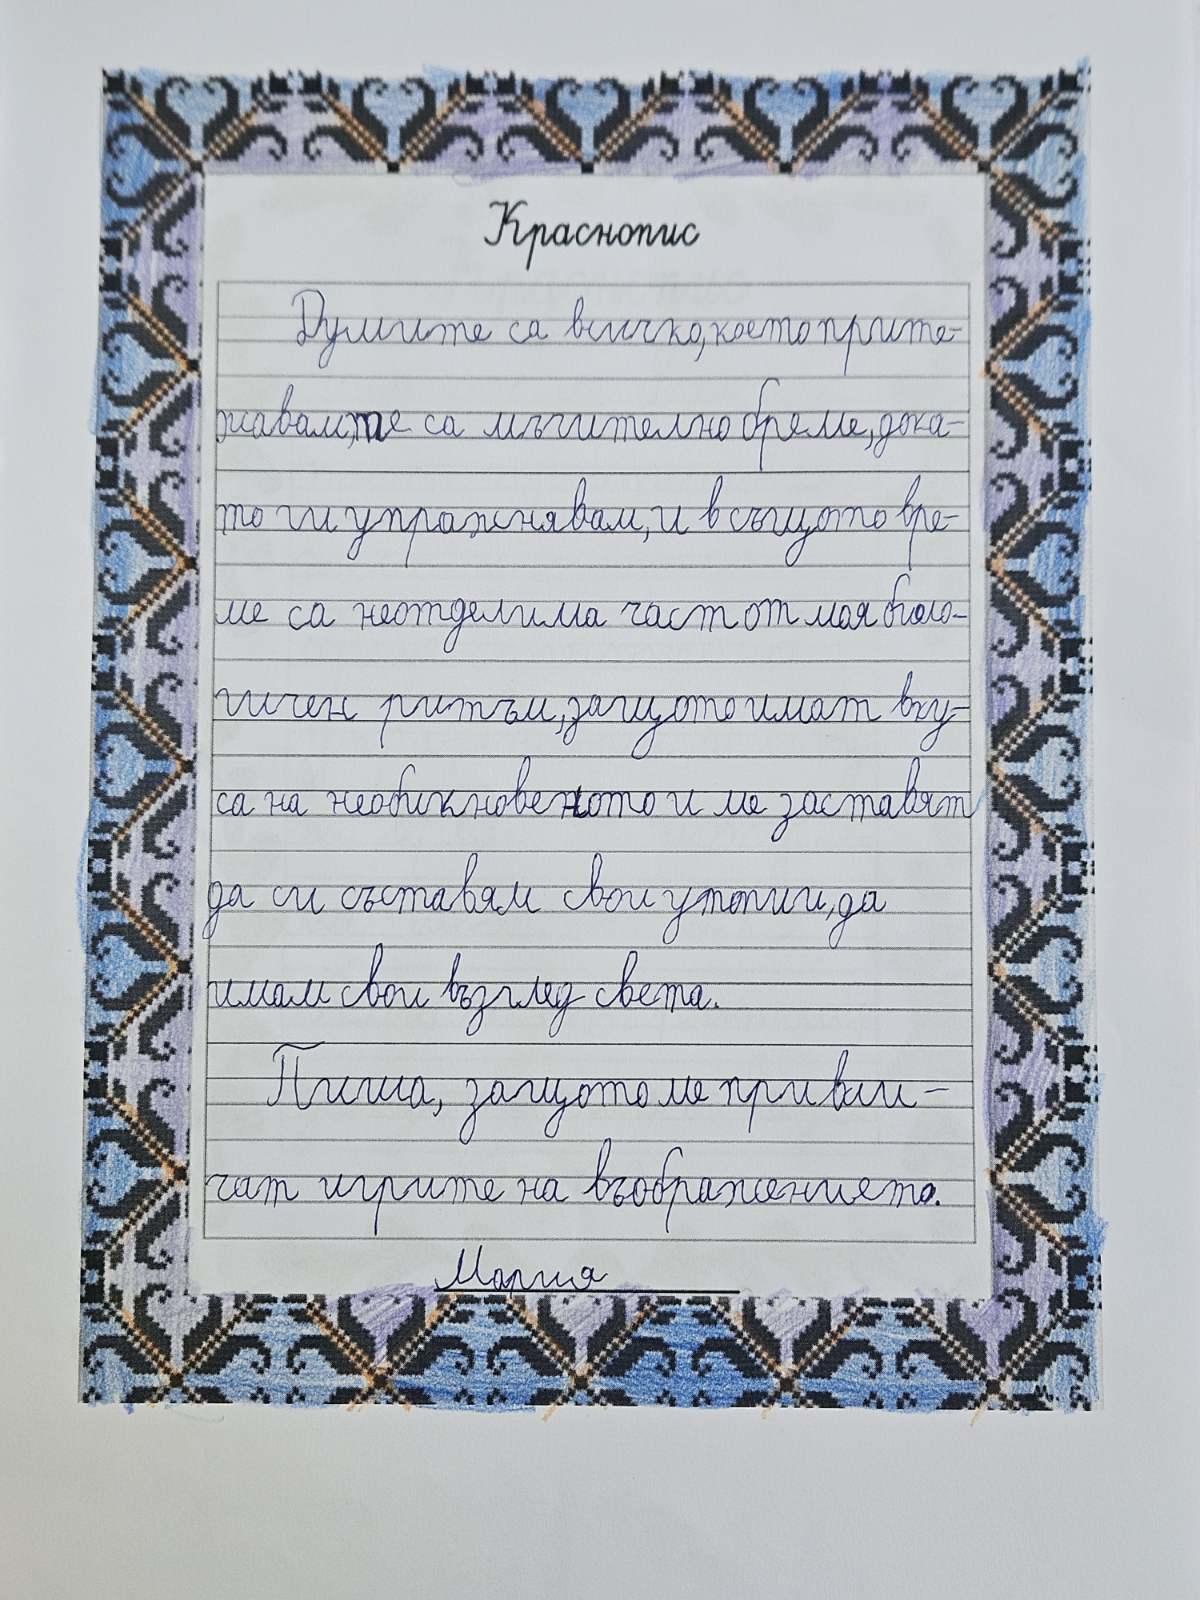 Краснопис
Думите са всичко, което прите-
жавам, те са мъчително бреме, дока-
то ги упражнявам, и в същото вре-
ме са неотделима част от моя биоло-
гичен ритъм, защото имат вку-
са на необикновеното и ме заставят
да си съставям свои утопии, да
имам свои възглед света.
Пиша, защото ме привли-
чат игрите на въображението.
Мария
М. С.